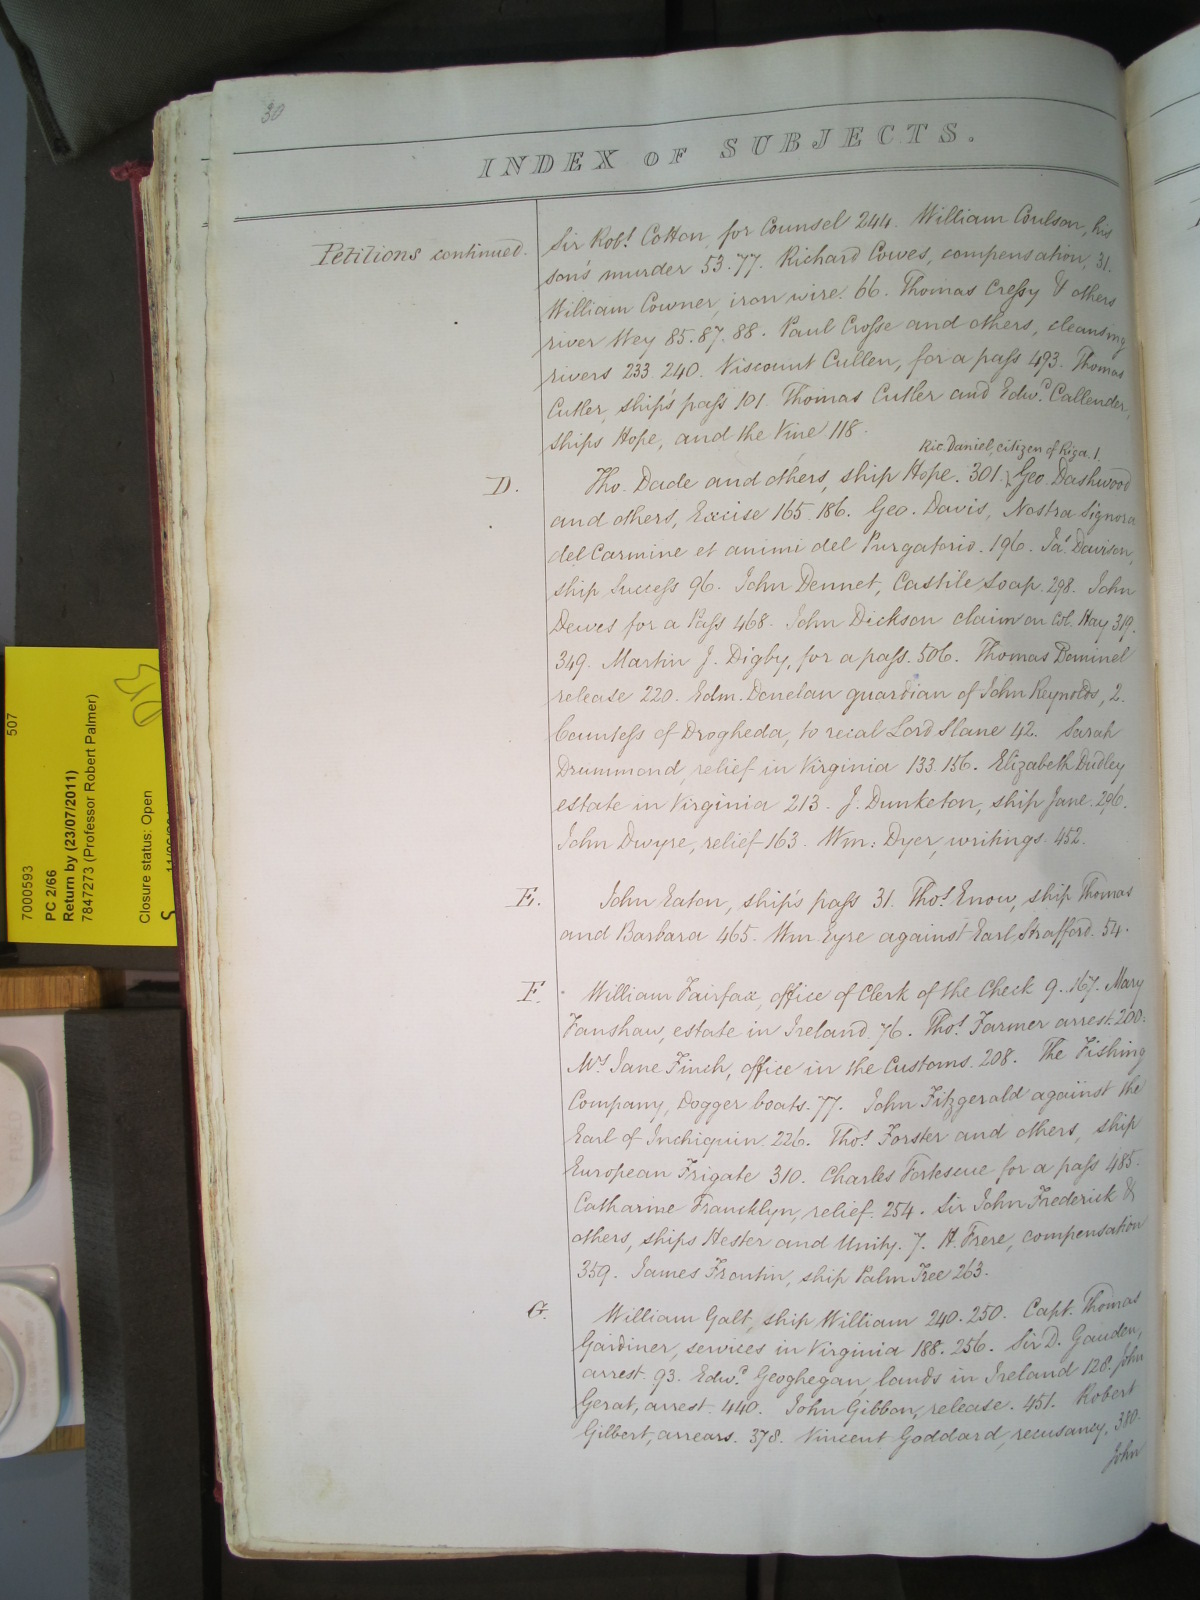 30
INDEX OF SUBJECTS.
Petitions continued.
Sir Robt. Cotton, for Counsel 244. William Coulson, his
son's murder 53.77. Richard Cowes, compensation, 31.
William Cowner, iron wire. 66. Thomas Cressy & others
river Wey 85.87.88. Paul Crosse and others, cleansing
rivers 233 240. Viscount Cullen, for a pass 493. Thomas
Cutler, ship's pass 101. Thomas Cutler and Edwd. Callender,
ships Hope, and the Vine 118.
Ric. Daniel, citizen of Riga. 1.
D. Tho. Dade and others, ship Hope. 301. Geo. Dashwood
and others, Excise 165.186. Geo. Davis, Nostra Signora
del Carmine et animi del Purgatorio. 196. Jas. Davison,
ship Success 96. John Dennet, Castile Soap. 298. John
Dewes for a Pass 468. John Dickson claim on Col. Hay 319.
349. Martin J. Digby, for a pass. 506. Thomas Deminel
release 220. Edm. Donelan guardian of John Reynolds, 2.
Countess of Drogheda, to recal Lord Slane 42. Sarah
Drummond, relief in Virginia 133.156. Elizabeth Dudley
estate in Virginia 213. J. Dunketon, ship Jane. 296.
John Dwyre, relief 163. Wm: Dyer, writings. 452.
E. John Eaton, ship's pass 31. Thos. Enow, ship Thomas
and Barbara 465. Wm Eyre against Earl Strafford. 54.
F. William Fairfax, office of Clerk of the Check 9. 167. Mary
Fanshaw, estate in Ireland. 76. Thos. Farmer arrest. 200.
Mrs. Jane Finch, office in the Customs. 208. The Fishing
Company, Dogger boats. 77. John Fitzgerald against the
Earl of Inchiquin. 226. Thos. Forster and others, ship
European Frigate 310. Charles Forteseue for a pass 485.
Catharine Francklyn, relief. 254. Sir John Frederick &
others, ships Hester and Unity. 7. H. Frere, compensation
359. James Frontin, ship Palm Tree 263.
G. William Galt, ship William 240.250. Capt. Thomas
Gardiner, services in Virginia 188.256. Sir D. Gauden,
arrest. 93. Edwd. Geoghegan, lands in Ireland 128. John
Gerat, arrest. 440. John Gibbon, release. 451. Robert
Gilbert, arrears. 378. Vincent Goddard, recusancy. 380.
John
7000593
507
PC 2/66
Return by (23/07/2011)
7847273 (Professor Robert Palmer)
Closure status: Open